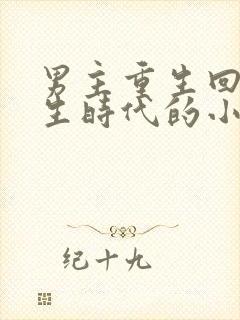 男主重生回
生时代的小
纪十九